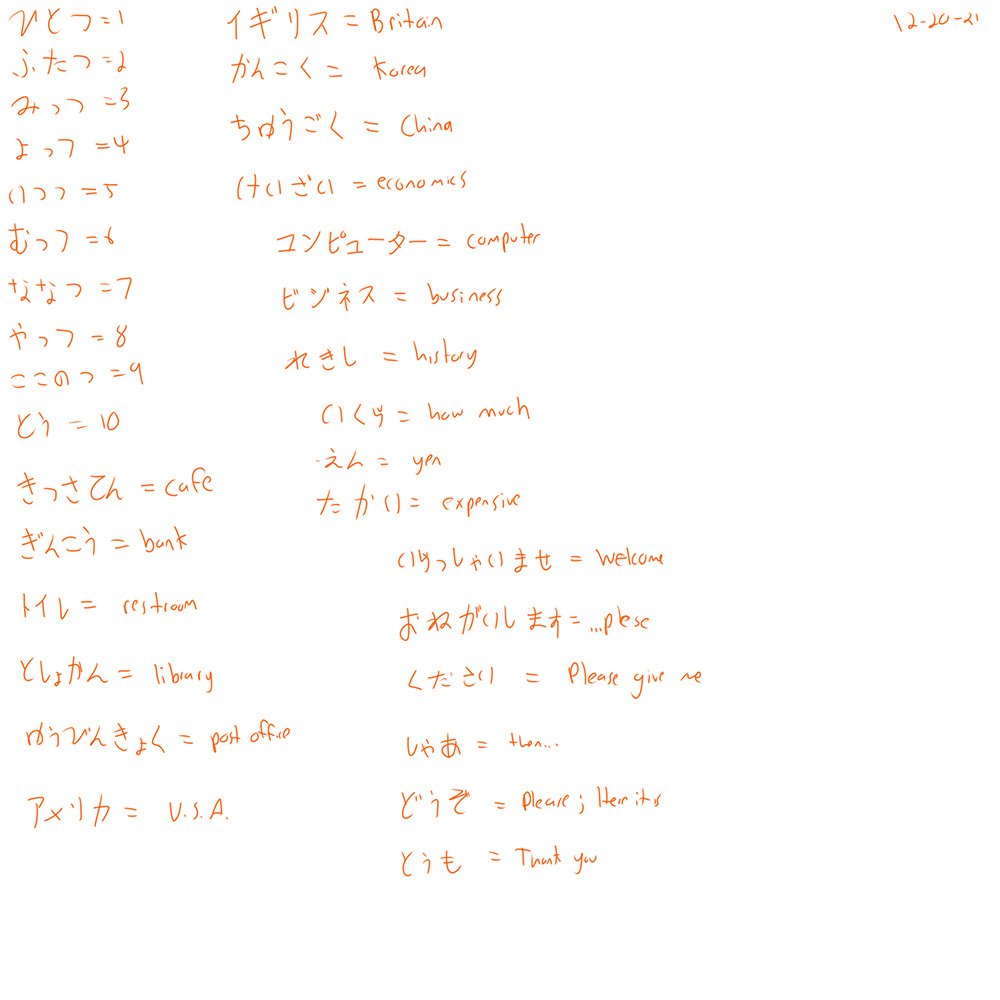 ひとつ=1
ふたつ=2
みっつ=3
よっつ=4
いつつ=5
むっつ=6
ななつ=7
やっつ=8
ここのつ=9
とう=10
きっさてん=cafe
ぎんこう=bank
トイレ= restroom
としょかん= library
ゆうびんきょく= post office
アメリカ= U.S.A.
イギリス=Britain
かんこく= Korea
ちゅうごく= China
けいざい=economics
コンピューター=computer
ビジネス= business
れきし= history
いくら= how much
えん= yen
たかい= expensive
いらっしゃいませ= Welcome
おねがいします=...plese
ください= Please give me
じゃあ= then...
どうぞ= Please; Here it is
どうも= Thank you
12-20-21